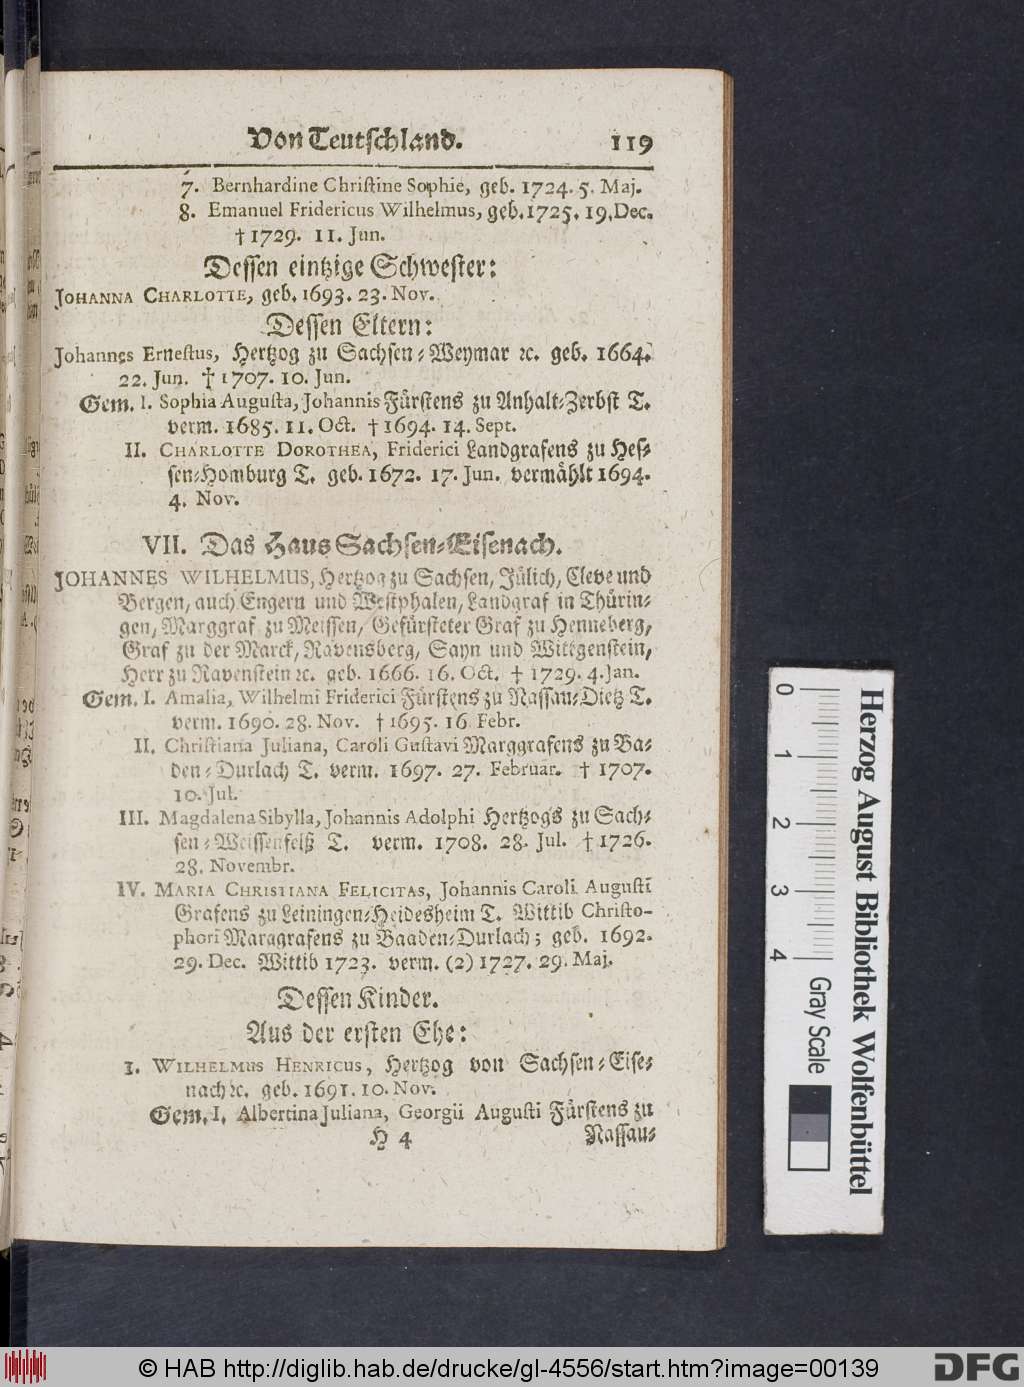 Von Teutschland. 119
7. Bernhardine Christine Sophie, geb. 1724. 5. Maj.
8. Emanuel Fridericus Wilhelmus, geb. 1725. 19. Dec.
† 1729. 11. Jun.
Dessen eintzige Schwester:
JOHANNA CHARLOTTE, geb. 1693. 23. Nov.
Dessen Eltern:
Johannes Ernestus, Hertzog zu Sachsen-Weymar ꝛc. geb. 1664.
22. Jun. † 1707. 10. Jun.
Gem. I. Sophia Augusta, Johannis Fürstens zu Anhalt-Zerbst T.
verm. 1685. 11. Oct. † 1694. 14. Sept.
II. CHARLOTTE DOROTHEA, Friderici Landgrafens zu Hes-
sen-Homburg T. geb. 1672. 17. Jun. vermählt 1694.
4. Nov.
VII. Das Haus Sachsen-Eisenach.
JOHANNES WILHELMUS, Hertzog zu Sachsen, Jülich, Cleve und
Bergen, auch Engern und Westphalen, Landgraf in Thürin-
gen, Marggraf zu Meissen, Gefürsteter Graf zu Henneberg,
Graf zu der Marck, Ravensberg, Sayn und Wittgenstein,
Herr zu Ravenstein ꝛc. geb. 1666. 16. Oct. † 1729. 4. Jan.
Gem. I. Amalia, Wilhelmi Friderici Fürstens zu Nassau-Dietz T.
verm. 1690. 28. Nov. † 1695. 16 Febr.
II. Christiana Juliana, Caroli Gustavi Marggrafens zu Ba-
den-Durlach T. verm. 1697. 27. Februar. † 1707.
10. Jul.
III. Magdalena Sibylla, Johannis Adolphi Hertzogs zu Sach-
sen-Weissenfelß T. verm. 1708. 28. Jul. † 1726.
28. Novembr.
IV. MARIA CHRISTIANA FELICITAS, Johannis Caroli Augusti
Grafens zu Leiningen-Heidesheim T. Wittib Christo-
phori Marggrafens zu Baaden-Durlach; geb. 1692.
29. Dec. Wittib 1723. verm. (2) 1727. 29. Maj.
Dessen Kinder.
Aus der ersten Ehe:
1. WILHELMUS HENRICUS, Hertzog von Sachsen-Eise-
nach ꝛc. geb. 1691. 10. Nov.
Gem. I. Albertina Juliana, Georgii Augusti Fürstens zu
H 4 Nassau-
0 1 2 3 4
Herzog August Bibliothek Wolfenbüttel
Gray Scale
© HAB http://diglib.hab.de/drucke/gl-4556/start.htm?image=00139
DFG